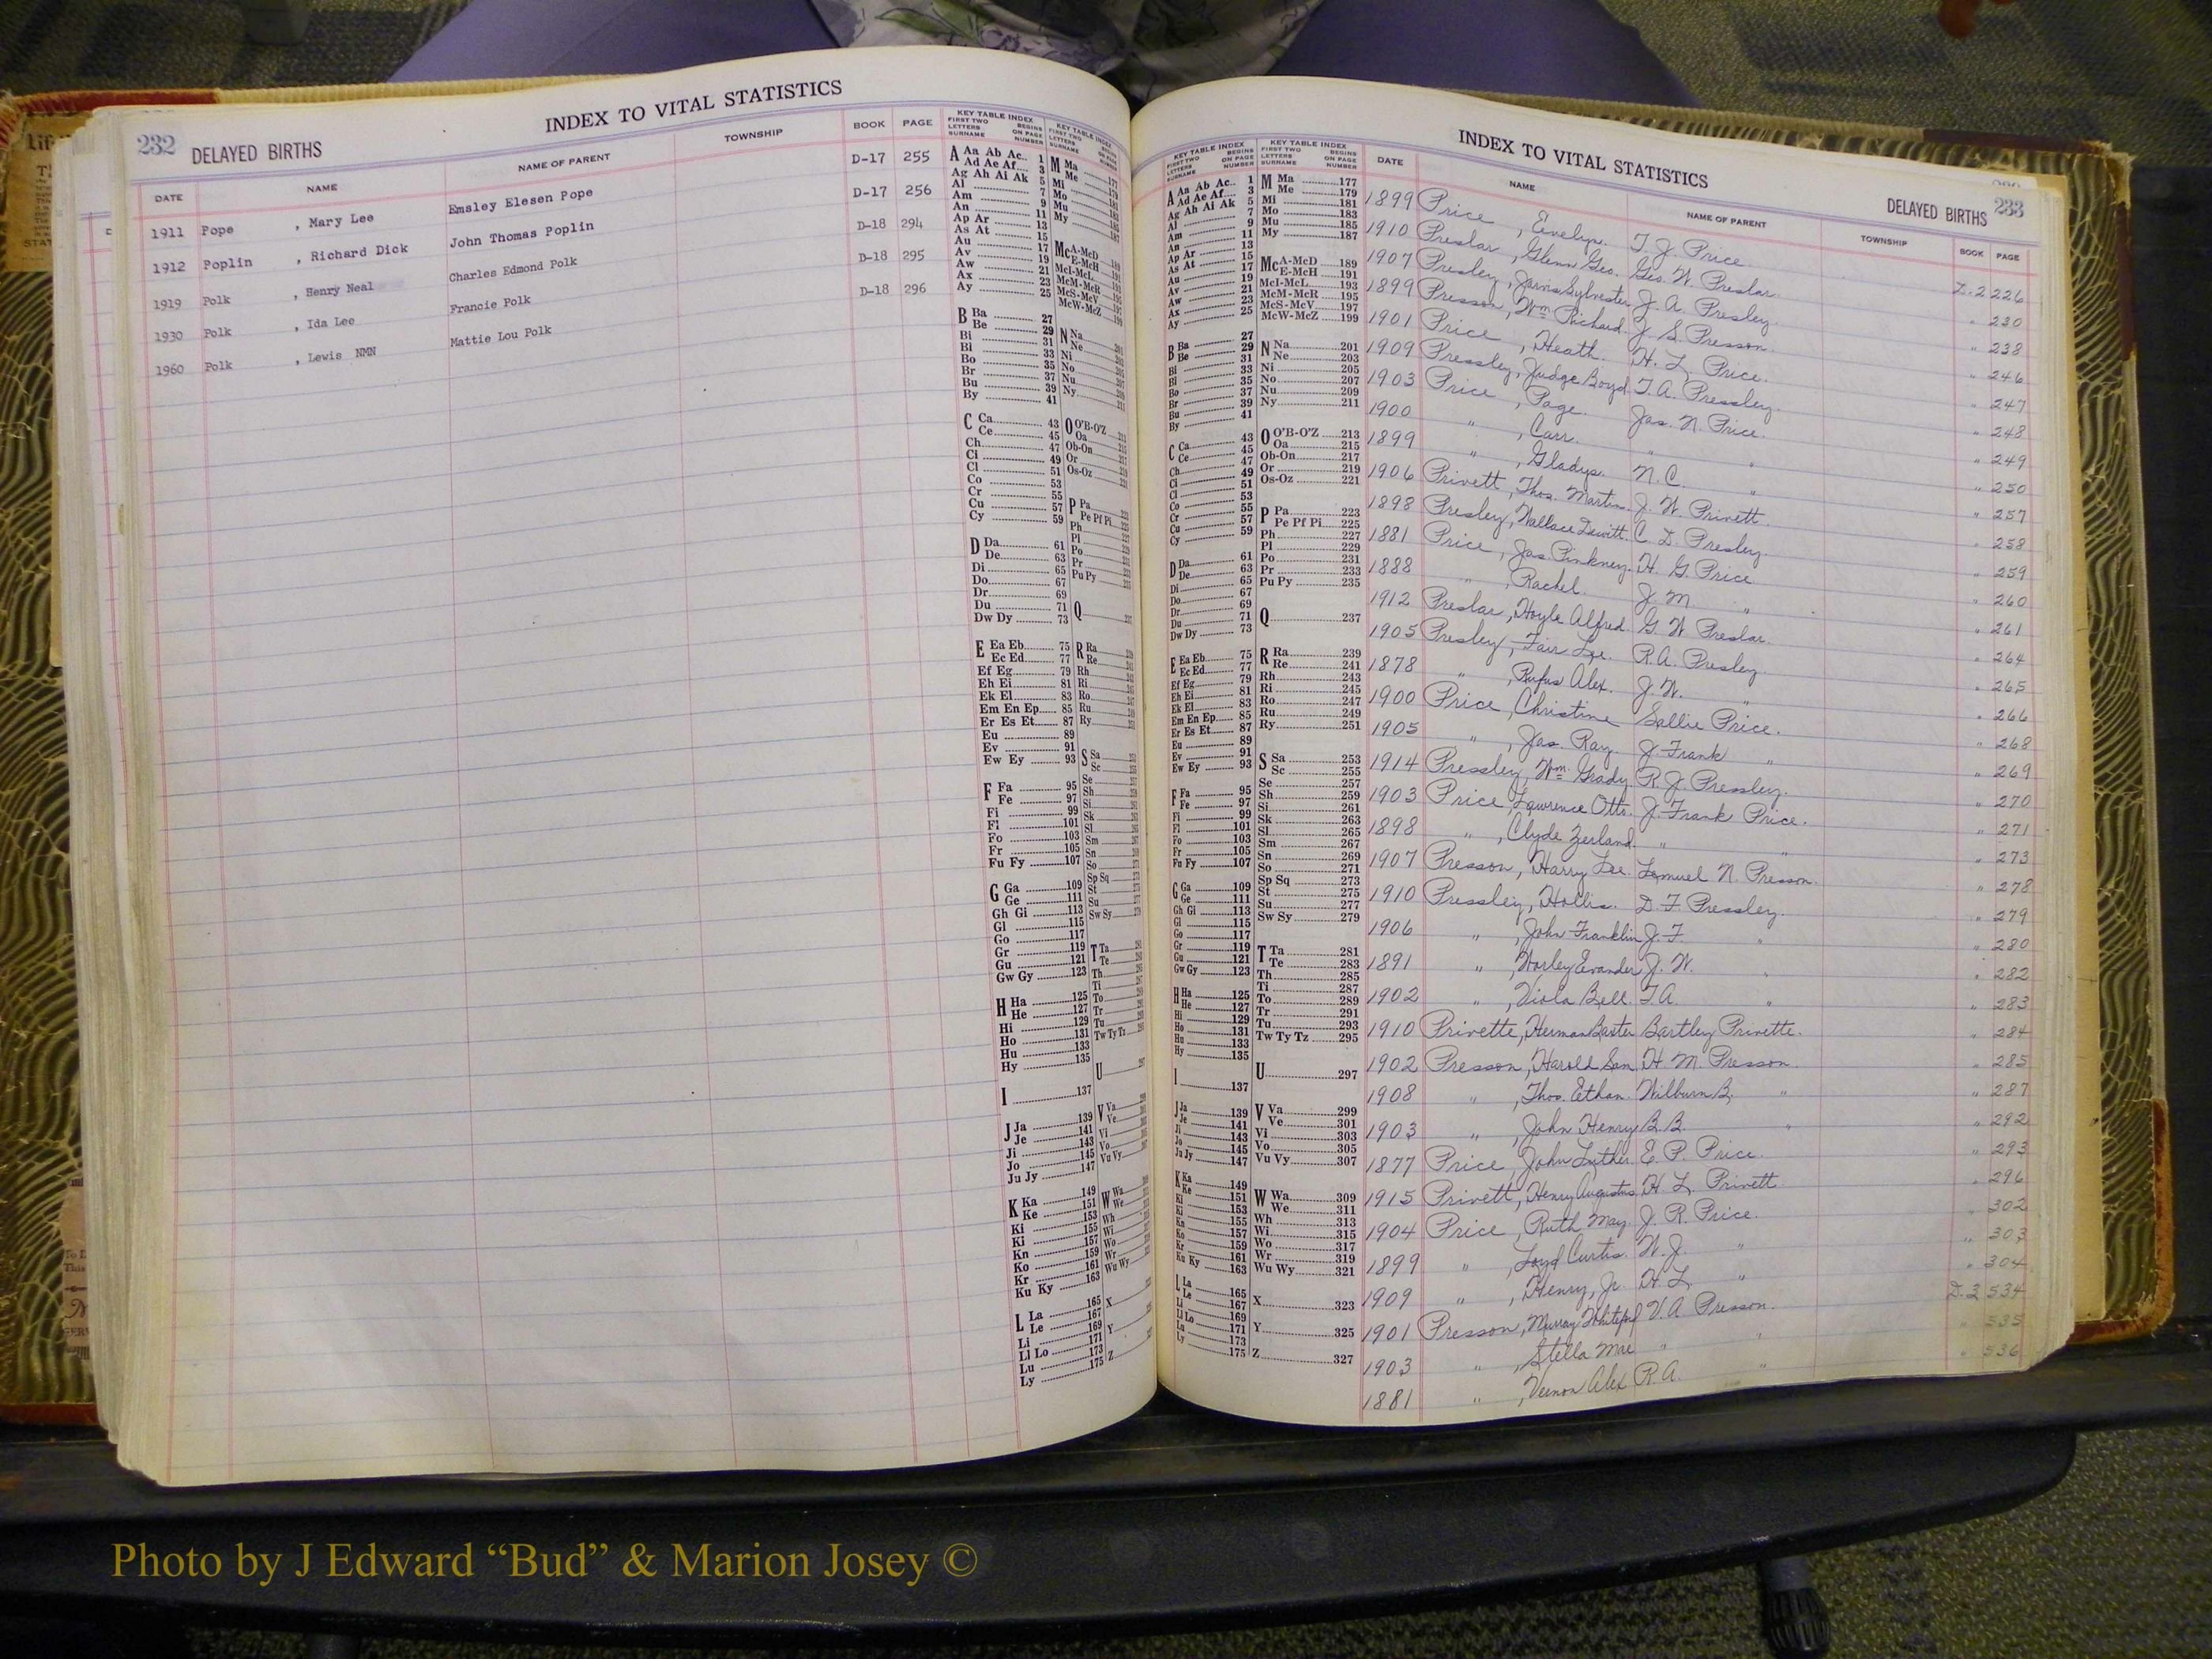 232 DELAYED BIRTHS
INDEX TO VITAL STATISTICS
DATE NAME NAME OF PARENT TOWNSHIP BOOK PAGE
1911 Pope , Mary Lee Emsley Elesen Pope D-17 255
1912 Poplin , Richard Dick John Thomas Poplin D-17 256
1919 Polk , Henry Neal Charles Edmond Polk D-18 294
1930 Polk , Ida Lee Francie Polk D-18 295
1960 Polk , Lewis NMN Mattie Lou Polk D-18 296
KEY TABLE INDEX KEY TABLE INDEX
FIRST TWO LETTERS SURNAME BEGINS ON PAGE NUMBER
INDEX TO VITAL STATISTICS
DELAYED BIRTHS 233
KEY TABLE INDEX KEY TABLE INDEX
FIRST TWO LETTERS SURNAME BEGINS ON PAGE NUMBER
A Aa Ab Ac.. 1
Ad Ae Af.... 3
Ag Ah Ai Ak 5
Al 7
Am 9
An 11
Ap Ar 13
As At 15
Au 17
Av 19
Aw 21
Ax 23
Ay 25
B Ba 27
Be 29
Bi 31
Bl 33
Bo 35
Br 37
Bu 39
By 41
C Ca 43
Ce 45
Ch 47
Ci 49
Cl 51
Co 53
Cr 55
Cu 57
Cy 59
D Da 61
De 63
Di 65
Do 67
Dr 69
Du 71
Dw Dy 73
E Ea Eb 75
Ec Ed 77
Ef Eg 79
Eh Ei 81
Ek El 83
Em En Ep 85
Er Es Et 87
Eu 89
Ev 91
Ew Ey 93
F Fa 95
Fe 97
Fi 99
Fl 101
Fo 103
Fr 105
Fu Fy 107
G Ga 109
Ge 111
Gh Gi 113
Gl 115
Go 117
Gr 119
Gu 121
Gw Gy 123
H Ha 125
He 127
Hi 129
Ho 131
Hu 133
Hy 135
I 137
J Ja 139
Je 141
Ji 143
Jo 145
Ju Jy 147
K Ka 149
Ke 151
Ki 153
Kn 157
Ko 159
Kr 161
Ku Ky 163
L La 165
Le 167
Li 169
Ll Lo 171
Lu 173
Ly 175
M Ma 177
Me 179
Mi 181
Mo 183
Mu 185
My 187
McA-McD 189
E-McH 191
McI-McL 193
McM-McR 195
McS-McV 197
McW-McZ 199
N Na 201
Ne 203
Ni 205
No 207
Nu 209
Ny 211
O O'B-O'Z 213
Oa 215
Ob-On 217
Or 219
Os-Oz 221
P Pa 223
Pe Pf Pi 225
Ph 227
Pl 229
Po 231
Pr 233
Pu Py 235
Q 237
R Ra 239
Re 241
Rh 243
Ri 245
Ro 247
Ru 249
Ry 251
S Sa 253
Sc 255
Se 257
Sh 259
Si 261
Sk 263
Sl 265
Sm 267
Sn 269
So 271
Sp Sq 273
St 275
Su 277
Sw Sy 279
T Ta 281
Te 283
Th 285
Ti 287
To 289
Tr 291
Tu 293
Tw Ty Tz 295
U 297
V Va 299
Ve 301
Vi 303
Vo 305
Vu Vy 307
W Wa 309
We 311
Wh 313
Wi 315
Wo 317
Wr 319
Wu Wy 321
X 323
Y 325
Z 327
DATE NAME NAME OF PARENT TOWNSHIP BOOK PAGE
1899 Price , Evelyn. T. J. Price D.2 226
1910 Preslar , Glenn Geo. Geo. W. Preslar. " 230
1907 Presley , Jarvis Sylvester J. A. Presley " 238
1899 Presson, Wm Richard. J. S. Presson " 246
1901 Price , Heath. H. L. Price. " 247
1909 Pressley, Judge Boyd. T. A. Pressley. " 248
1903 Price , Page. Jas. N. Price. " 249
1900 " , Carr. " " " 250
1899 " , Gladys. N. C. " " 257
1906 Privett, Thos. Martin. J. W. Privett. " 258
1898 Presley, Wallace Dewitt. C. D. Presley. " 259
1881 Price , Jas. Pinkney. H. G. Price " 260
1888 " , Rachel. J. M. " " 261
1912 Preslar, Hoyle Alfred. G. W. Preslar. " 264
1905 Presley, Fair Lee. R. A. Presley " 265
1878 " , Rufus Alex. J. W. " " 266
1900 Price , Christine Sallie Price. " 268
1905 " , Jas. Ray. J. Frank " " 269
1914 Pressley, Wm. Grady R. J. Pressley. " 270
1903 Price , Lawrence Otto. J. Frank Price. " 271
1898 " , Clyde Zerland. " " " 273
1907 Presson, Harry Lee. Lemuel N. Presson. " 278
1910 Pressley, Hollis. D. F. Pressley. " 279
1906 " , John Franklin J. F. " " 280
1891 " , Worley Evander J. W. " " 282
1902 " , Viola Bell. T. A. " " 283
1910 Privette, Herman Baxter Bartley Privette. " 284
1902 Presson, Harold San. H. M. Presson. " 285
1908 " , Thos. Ethan. Wilburn B. " " 287
1903 " , John Henry B. B. " " 292
1877 Price , John Luther. E. P. Price " 293
1915 Privett, Henry Augustus. H. L. Privett " 296
1904 Price , Ruth May. J. R. Price. " 302
1899 " , Loyd Curtis. W. J. " " 303
1909 " , Henry, Jr. H. L. " " 304
1901 Presson, Murray V. A. Presson. D.2 534
1903 " , Stella Mae " " " 535
1881 " , Vernon Alex R. A. " " 536
Photo by J Edward “Bud” & Marion Josey ©